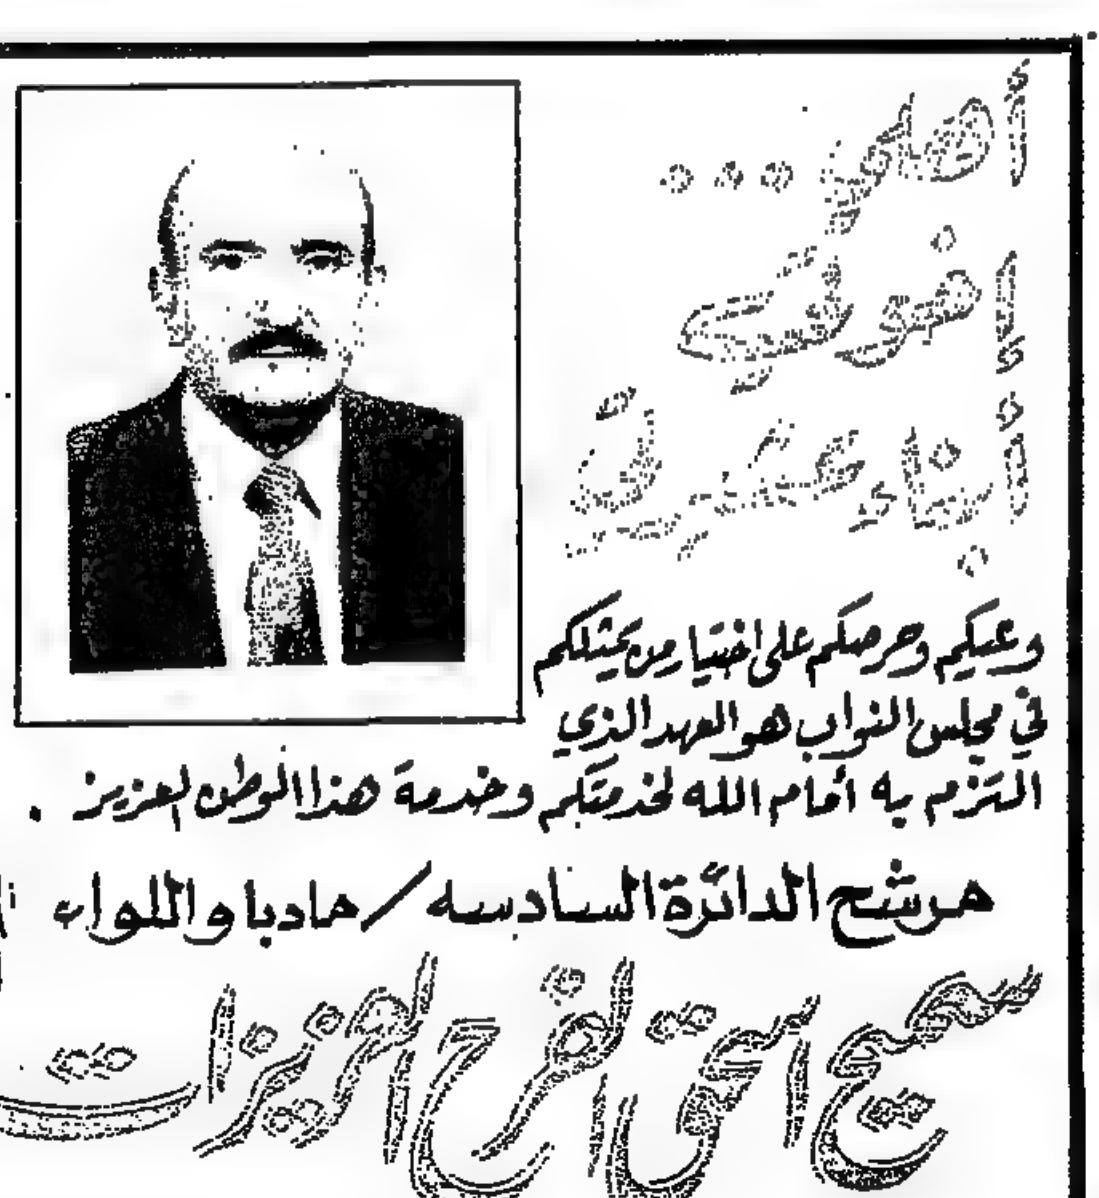 أهلي ...
إخوتي
أبناء عشيرتي
وعيكم وحرصكم على اختيار من يمثلكم
في مجلس النواب هو العهد الذي
التزم به أمام الله لخدمتكم وخدمة هذا الوطن العزيز .
مرشح الدائرة السادسه / مادبا واللواء
سميح اسحق الفرح